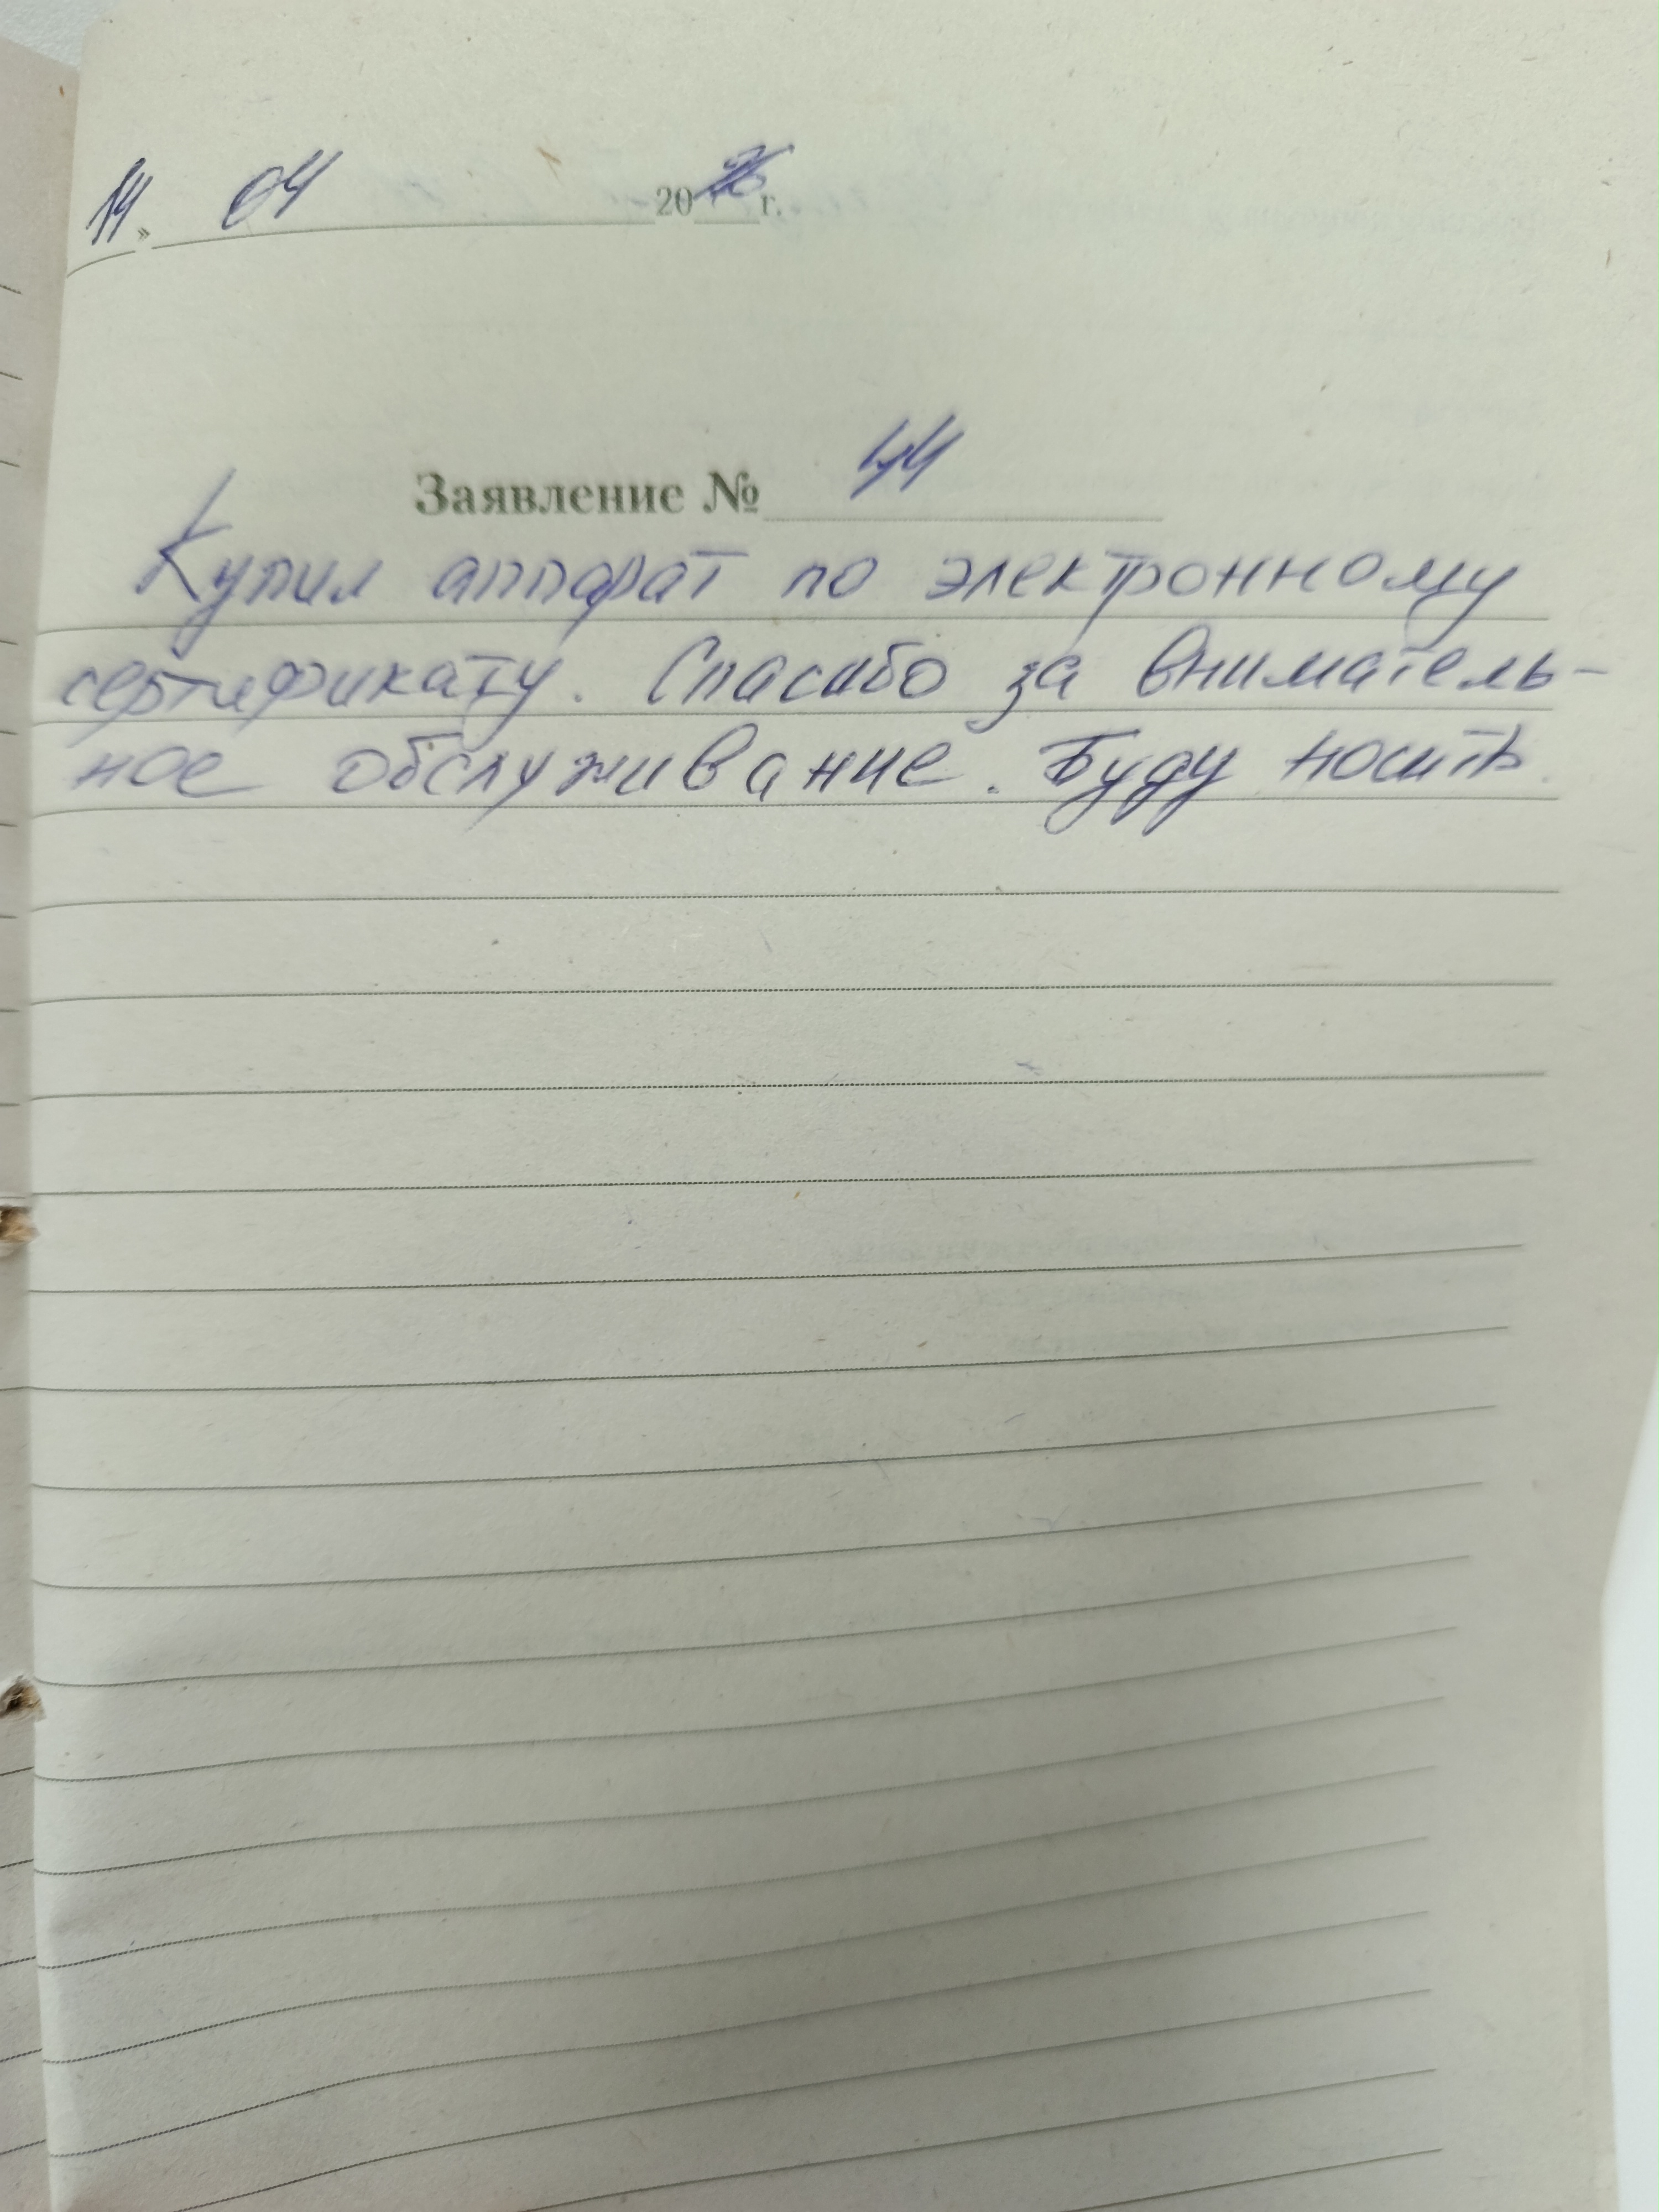 14 » 04 2026 г.
Заявление № 44
Купил аппарат по электронному
сертификату. Спасибо за вниматель-
ное обслуживание. Буду носить.